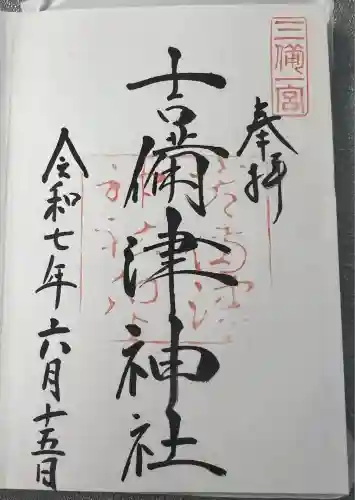 三備一宮
奉拝
吉備津神社
令和七年六月十五日